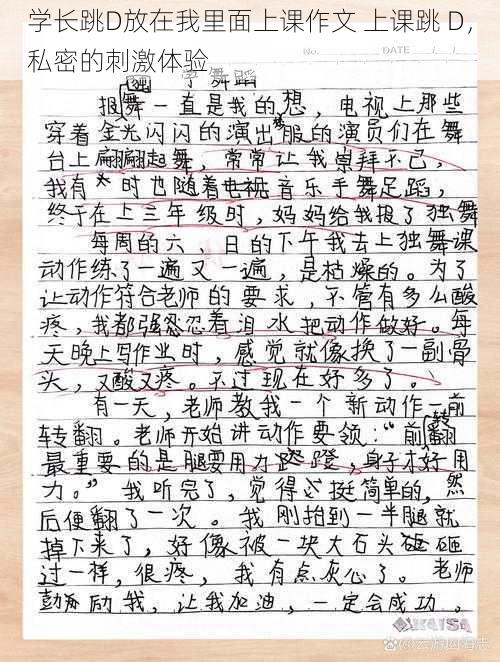 学长跳D放在我里面上课作文 上课跳 D，
私密的刺激体验
学舞蹈
报舞一直是我的想，电视上那些
穿着金光闪闪的演出服的演员们在舞
台上翩翩起舞，常常让我崇拜不已，
我有时也随着电视音乐手舞足蹈，
终于在上三年级时，妈妈给我报了独舞
每周的六、日的下午我去上独舞课
动作练了一遍又一遍，是枯燥的。为了
让动作符合老师的要求，不管有多么酸
疼，我都强忍忍着泪水把动作做好。每
天晚上写作业时，感觉就像换了一副骨
头，又酸又疼。不过现在好多了。
有一天，老师教我一个新动作—前
转翻。老师开始讲动作要领：“前转翻
最重要的是腿要用力蹬，身子才好用
力。”我听完了，觉得挺简单的，然
后便翻了一次。我刚拍到一半腿就
掉下来了，好像被一块大石头砸
过一样，很疼，我有点灰心了。老师
励我，让我加迪，一定会成功。